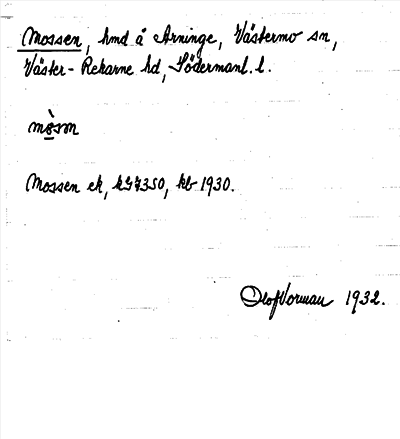 Mossen, hmd å Arninge, Västermo sn,
Väster-Rekarne hd, Södermanl. l.
mòsm
Mossen ek, kb 1930.
Olof Vorman 1932.